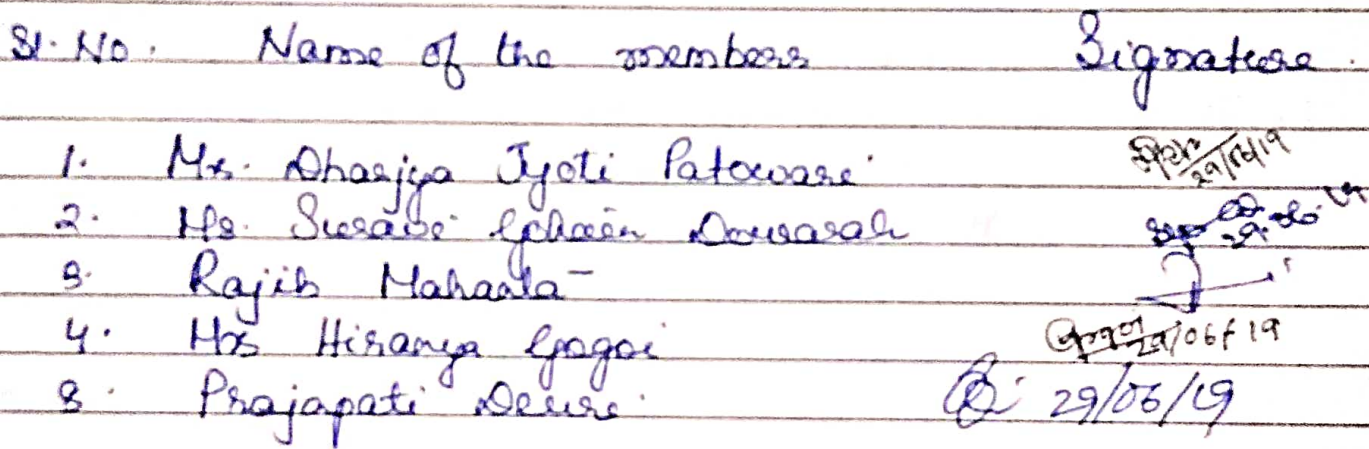 Sl. No. Name of the members Signature
1. Mr. Dharjya Jyoti Patowari 29/06/19
2. Ms. Suravi Gohain Dowarah
3. Rajib Mahanta
4. Mrs Hiranya Gogoi 29/06/19
5. Prajapati Deuri 29/06/19